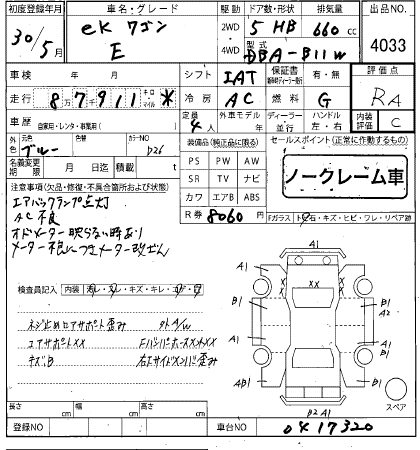 初度登録年月 車名・グレード 駆動 ドア数・形状 排気量 出品NO.
30/5月 ek ワゴン E 2WD 4WD 5 HB 660 cc 4033
型式 DBA-B11W
車検 年 月 シフト IAT 保証書 有・無 評価点
走行 87911 キロ マイル ✳ 冷房 AC 燃料 G RA
車歴 自家用・レンタ・事業用( ) 定員 4人 外車モデル 年 ディーラー 並行 ハンドル 左・右 内装評価 C
外色 元色 ブルー 色替 カラーNO D26
装備品(純正品に限る) セールスポイント(正常に作動するもの)
名義変更期限 月 日迄 積載量 t
PS PW AW
SR TV ナビ
カワ エアB ABS
ノークレーム車
R券 8060 円
注意事項(欠品・修復・不具合箇所および状態)
エアバックランプ点灯
AC不良
オドメーター映らない時あり
メーター不良につきメーター改ざん
Fガラス 石・キズ・ヒビ・ワレ・リペア跡
検査員記入 内装 汚レ・スレ・キズ・キレ・コゲ・穴
ネジ止めロアサポート歪み 外A/w
コアサポートXX
キズB 右Fサイドメンバ歪み
A1
A1 X X A1
B1 XX B1
A2
A1 A1
AB1 B1
B2 A1
スペア
長さ cm 幅 cm 高さ cm
登録NO 車台NO 0417320